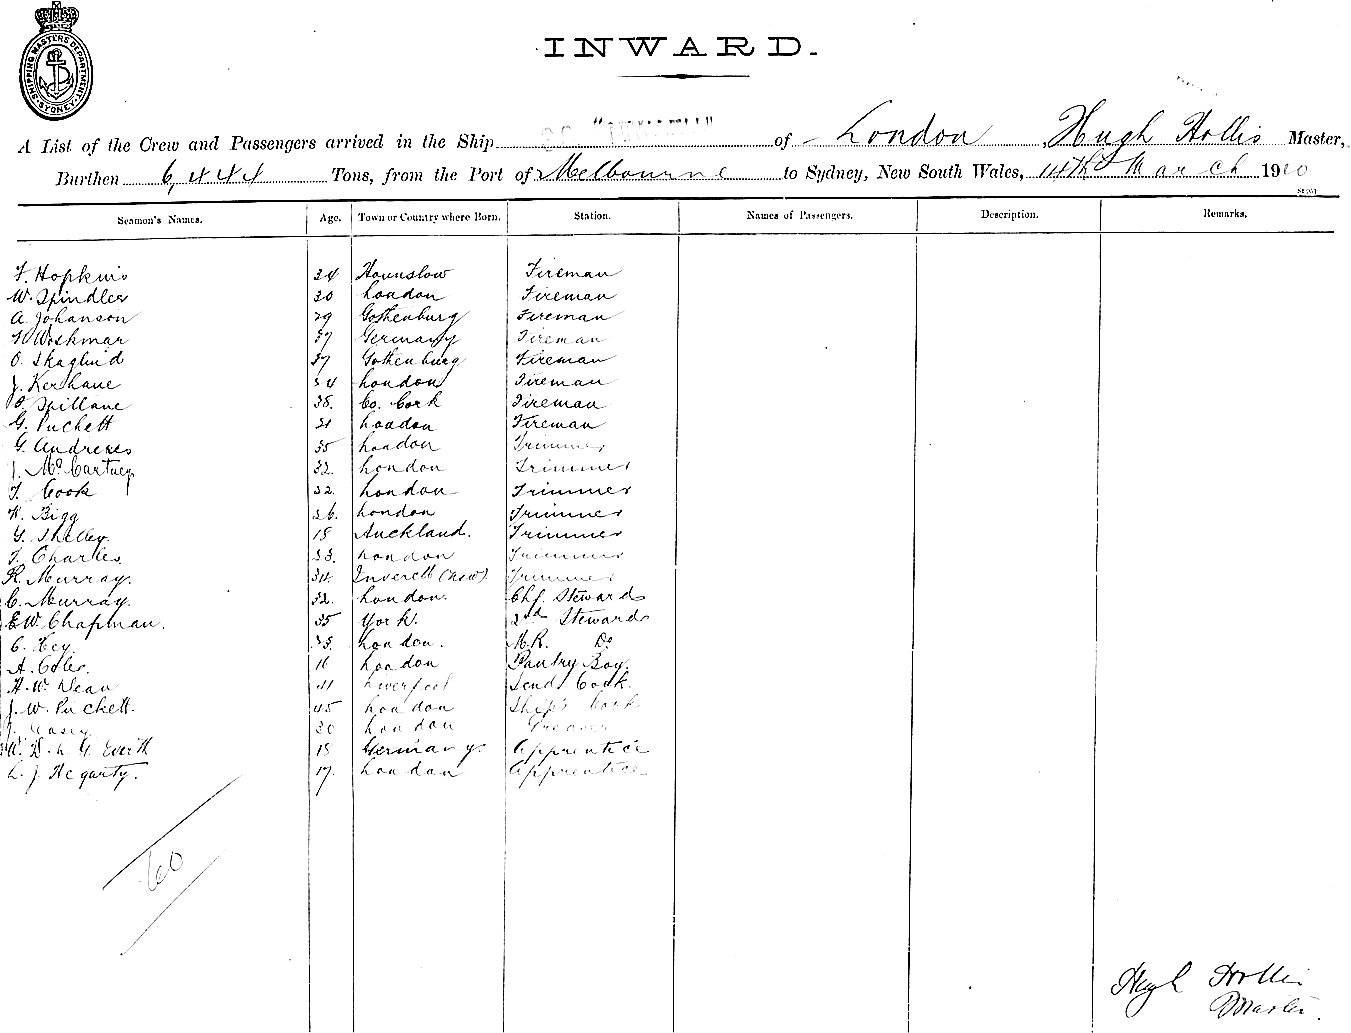 SHIPPING MASTERS DEPARTMENT SYDNEY
INWARD.
A List of the Crew and Passengers arrived in the Ship of London, Hugh Hollis Master,
Burthen 6,444 Tons, from the Port of Melbourne to Sydney, New South Wales, 14th March 1910
Seamen's Names. Age. Town or Country where Born. Station. Names of Passengers. Description. Remarks.
F. Hopkins 34 Hounslow Fireman
W. Spindler 30 London Fireman
A. Johanson 29 Gothenburg Fireman
37 Germany Fireman
O. Skaglund 37 Gothenburg Fireman
J. Kershane 34 London Fireman
Spillane 38. Co. Cork Fireman
G. Puckett 21 London Fireman
G. Andrews 35 London Trimmer
J. McCartney 32. London Trimmer
T. Cook 22. London Trimmer
Bigg 26. London Trimmer
G. Shelley. 18 Auckland. Trimmer
F. Charles. 33. London Trimmer
R. Murray. 34. Inverell (NSW) Trimmer
C. Murray. 32. London. Chf. Stewards
E W. Chapman. 35 York. 2nd Stewards
C. Key. 33. London. M.R. Do
A. Coles. 16 London Pantry Boy.
H. W. Dean 41 Liverpool Cook.
J. W. Puckett. 45 London Ship's Cook
J. Casey 30 London Greaser
Everth 18 Germany. Apprentice
L. J. Hegarty. 17. London Apprentice
60
Hugh Hollis
Master.